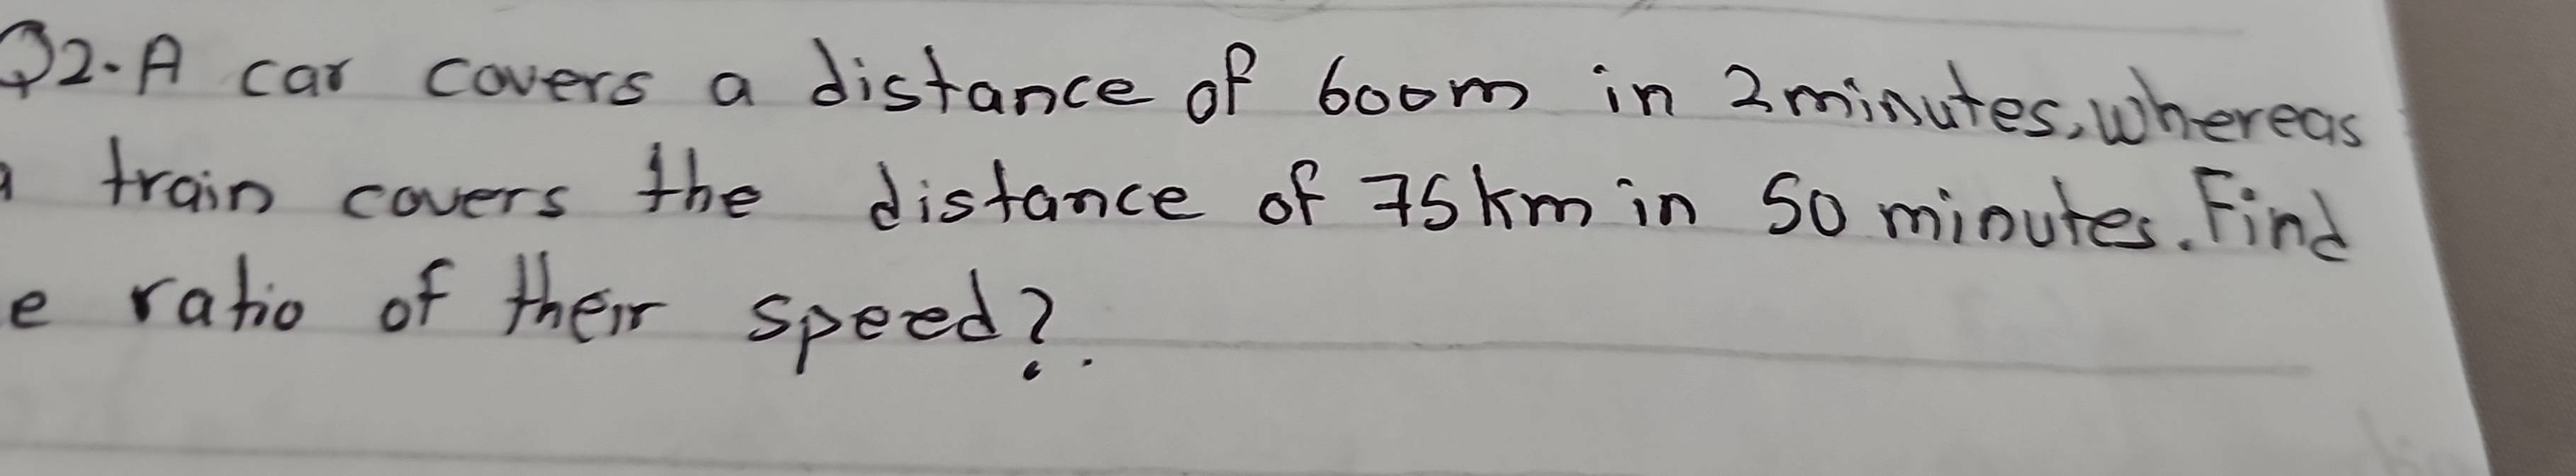 Q2. A car covers a distance of 600m in 2 minutes, whereas
train covers the distance of 75 km in 50 minutes. Find
e ratio of their speed?.